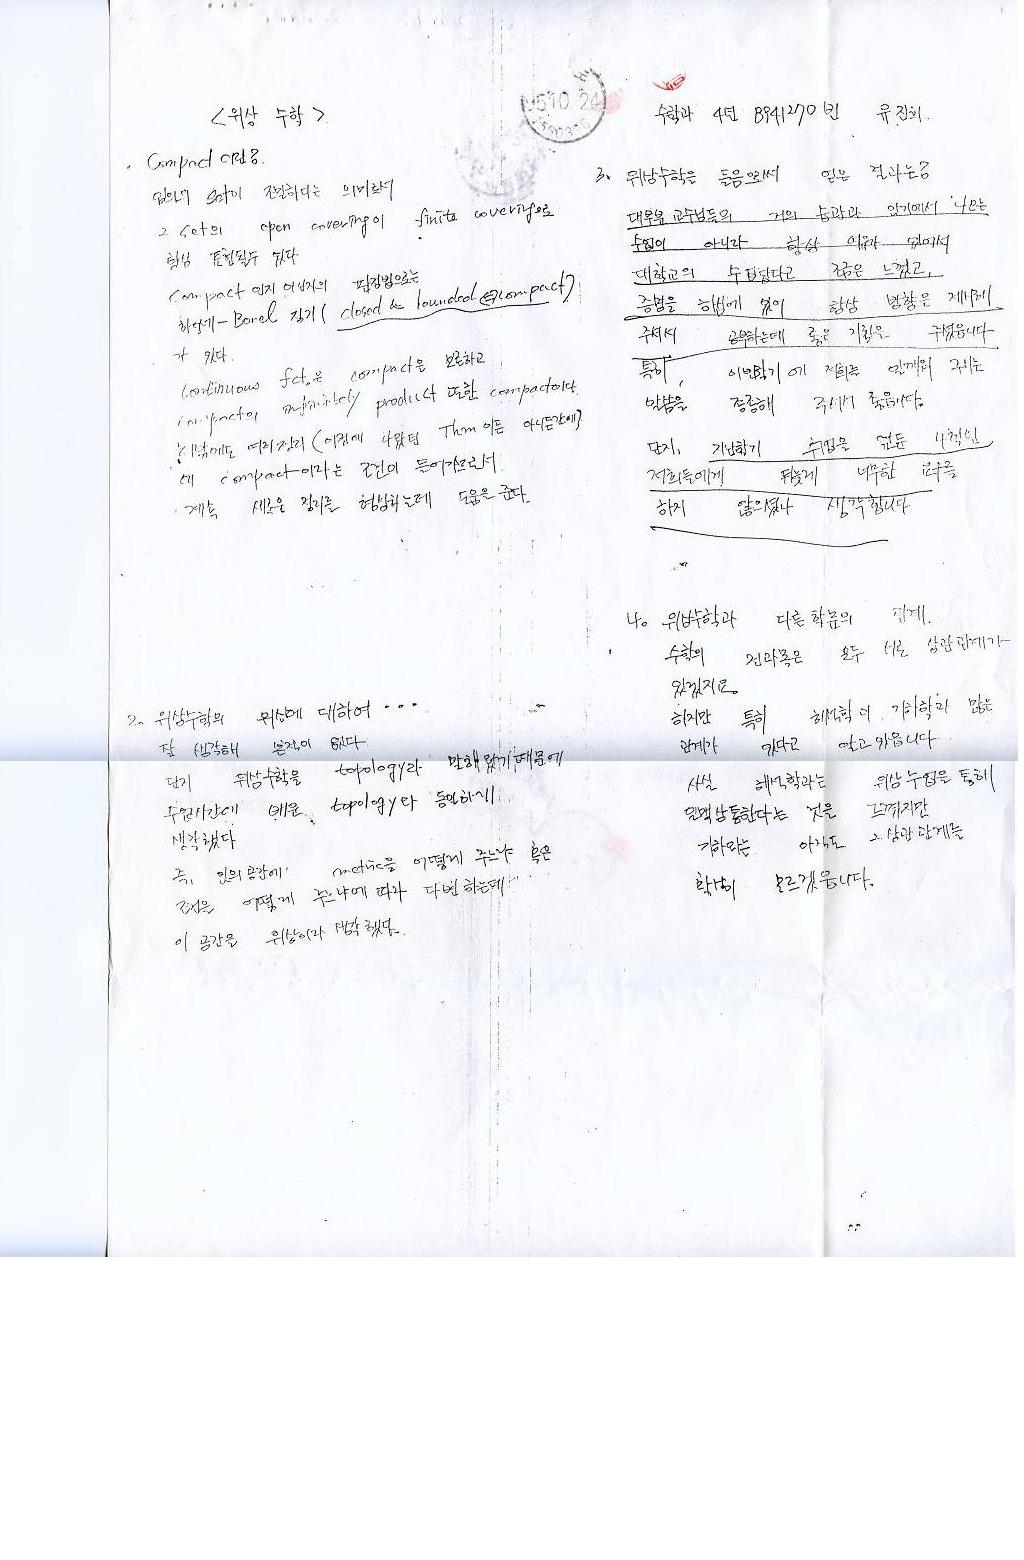 <위상 수학>
수학과 4년 8941270번 유진희.
. Compact 이란?
임의의 set이 조밀하다는 의미로서
그 set의 open covering이 finite covering으로
항상 표현될수 있다
Compact 인지 아닌지의 판정법으로는
하이네-Borel 정리 ( closed & bounded ⇔ compact )
가 있다.
Continuous fct.은 compact을 보존하고
compact의 infinitely product 또한 compact이다.
이밖에도 여러정리 (이전에 나왔던 Thm 이든 아니든간에)
에 compact이라는 조건이 들어감으로서
계속 새로운 정리를 형성하는데 도움을 준다.
2. 위상수학의 위상에 대하여 ...
잘 생각해 본적이 없다
단지 위상수학을 topology라 말해 왔기 때문에
수업시간에 배운 topology와 동일하게
생각했다
즉, 임의공간에 metric을 어떻게 주느냐 혹은
조건을 어떻게 주느냐에 따라 다변하는데
이 공간을 위상이라 생각했다.
3. 위상수학은 들음으로써 얻은 결과는?
대부분 교수님들의 거의 습관과 암기에서 나오는
수업이 아니라 항상 여유가 있어서
대학교의 수업답다고 조금은 느꼈고,
증명을 하는데 있어 항상 방향을 제시해
주셔서 공부하는데 좋은 기회를 주었습니다
특히, 이번학기에 저희를 일깨워 주시는
말씀을 종종해 주셔서 좋습니다.
단지, 지난학기 수업을 걷든
저희들에게 뒤늦게 너무한 요구를
하지 않으셨나 생각합니다
4. 위상수학과 다른 학문의 관계.
수학의 전과목은 모두 서로 상관관계가
있겠지요.
하지만 특히 해석학이, 기하학과 많은
관계가 있다고 알고 있읍니다
사실 해석학과는 위상 수업을 통해
일맥상통한다는 것을 느끼지만
기하와는 아직도 그 상관관계를
확실히 모르겠읍니다.